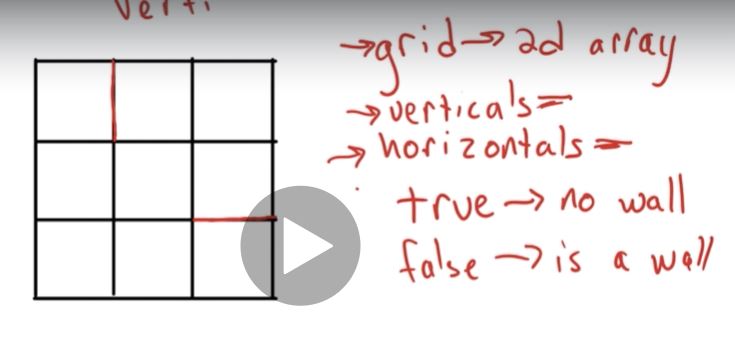 verti
→grid→2d array
→verticals=
→horizontals=
true→no wall
false→is a wall